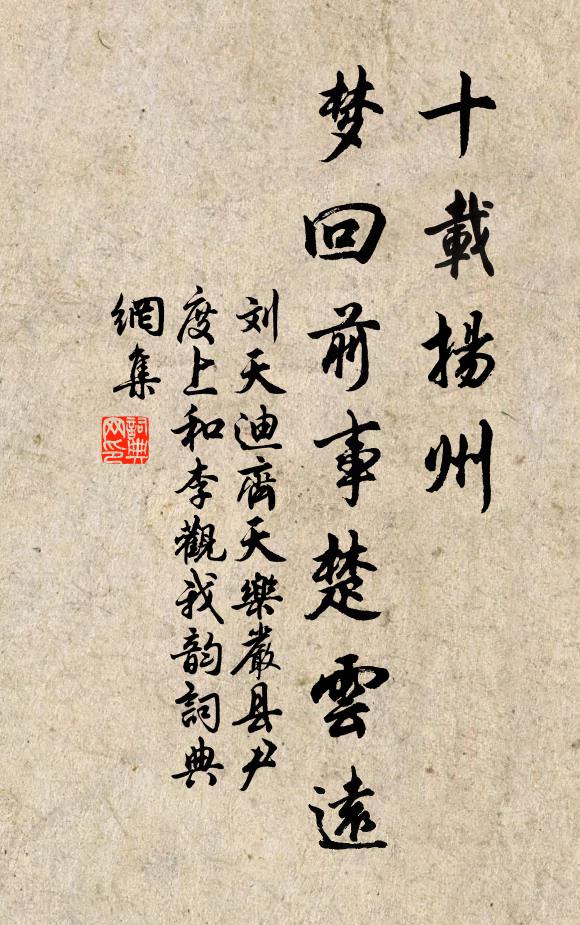 十載揚州
梦回前事楚雲遠
刘天迪齊天樂嚴县尹
度上和李觀我韵詞典
網集
詞典
网印